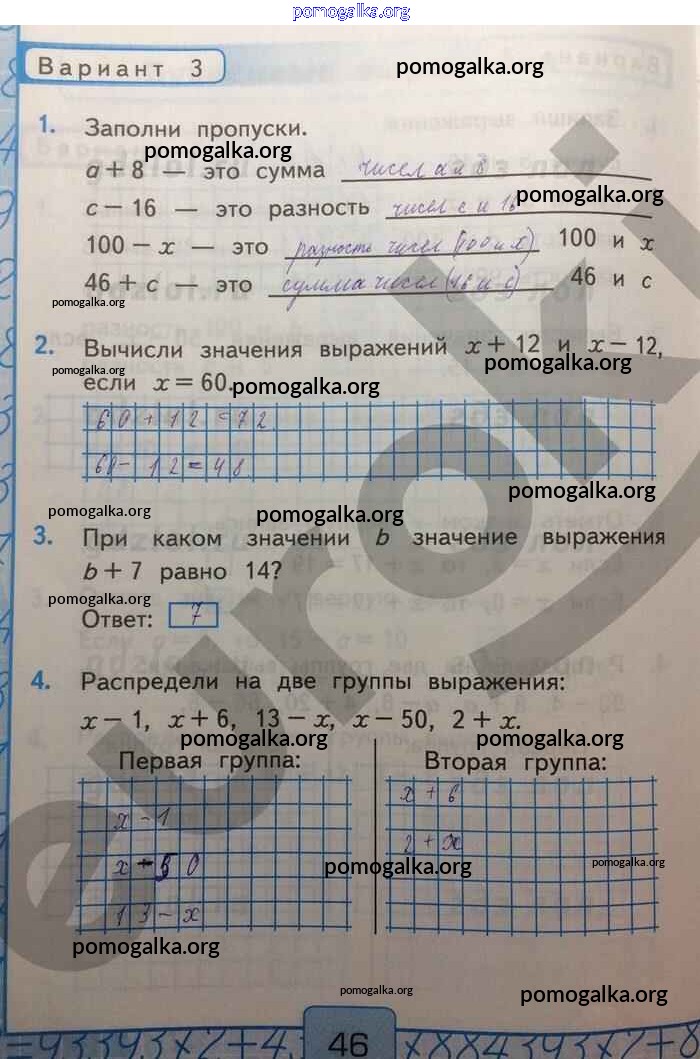 pomogalka.org
Вариант 3
pomogalka.org
1. Заполни пропуски.
pomogalka.org
a + 8 — это сумма чисел a и 8
pomogalka.org
c − 16 — это разность чисел c и 16
100 − x — это разность чисел (100 и x) 100 и x
46 + c — это сумма чисел (46 и c) 46 и c
pomogalka.org
2. Вычисли значения выражений x + 12 и x − 12,
pomogalka.org pomogalka.org
если x = 60.
pomogalka.org
60 + 12 = 72
60 − 12 = 48
pomogalka.org
pomogalka.org pomogalka.org
3. При каком значении b значение выражения
b + 7 равно 14?
pomogalka.org
Ответ: 7
4. Распредели на две группы выражения:
x − 1, x + 6, 13 − x, x − 50, 2 + x.
pomogalka.org pomogalka.org
Первая группа: Вторая группа:
x + 6
x − 1
2 + x
x − 50
pomogalka.org pomogalka.org
13 − x
pomogalka.org
pomogalka.org pomogalka.org
46
euroki